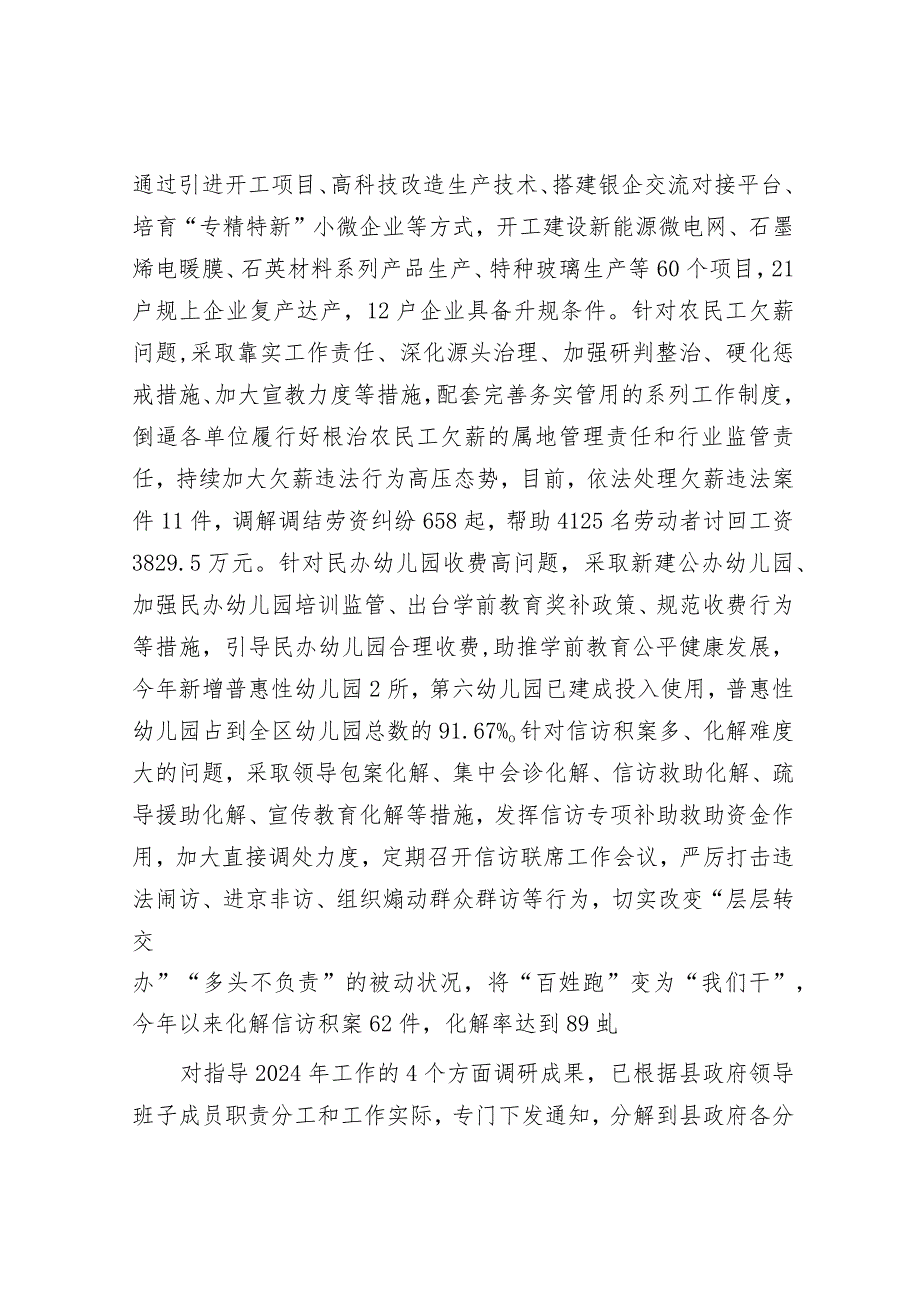 通过引进开工项目、高科技改造生产技术、搭建银企交流对接平台、
培育“专精特新”小微企业等方式，开工建设新能源微电网、石墨
烯电暖膜、石英材料系列产品生产、特种玻璃生产等 60 个项目,21
户规上企业复产达产，12 户企业具备升规条件。针对农民工欠薪
问题,采取靠实工作责任、深化源头治理、加强研判整治、硬化惩
戒措施、加大宣教力度等措施，配套完善务实管用的系列工作制度，
倒逼各单位履行好根治农民工欠薪的属地管理责任和行业监管责
任，持续加大欠薪违法行为高压态势，目前，依法处理欠薪违法案
件 11 件，调解调结劳资纠纷 658 起，帮助 4125 名劳动者讨回工资
3829.5 万元。针对民办幼儿园收费高问题，采取新建公办幼儿园、
加强民办幼儿园培训监管、出台学前教育奖补政策、规范收费行为
等措施，引导民办幼儿园合理收费,助推学前教育公平健康发展，
今年新增普惠性幼儿园 2 所，第六幼儿园已建成投入使用，普惠性
幼儿园占到全区幼儿园总数的 91.67%。针对信访积案多、化解难度
大的问题，采取领导包案化解、集中会诊化解、信访救助化解、疏
导援助化解、宣传教育化解等措施，发挥信访专项补助救助资金作
用，加大直接调处力度，定期召开信访联席工作会议，严厉打击违
法闹访、进京非访、组织煽动群众群访等行为，切实改变“层层转
交
办”“多头不负责”的被动状况，将“百姓跑”变为“我们干”，
今年以来化解信访积案 62 件，化解率达到 89 虬
对指导 2024 年工作的 4 个方面调研成果，已根据县政府领导
班子成员职责分工和工作实际，专门下发通知，分解到县政府各分